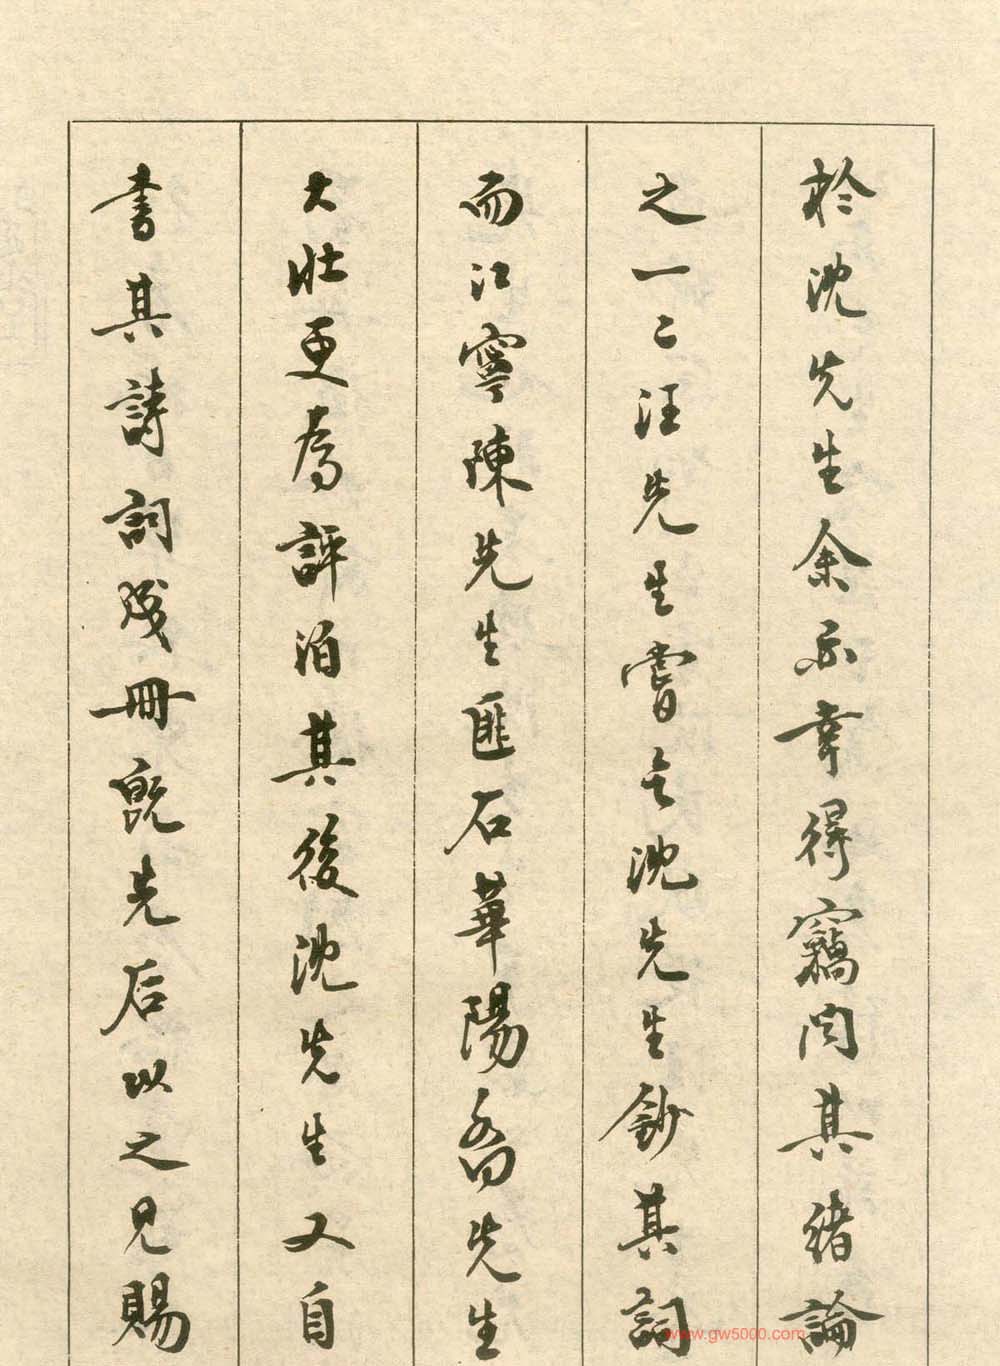 於沈先生余亦幸得竊闻其緒論
之一二汪先生嘗乞沈先生鈔其詞
而江寧陳先生匪石華陽喬先生
大壯更為評泊其後沈先生又自
書其詩詞殘冊既先后以之見賜
www.gw5000.com